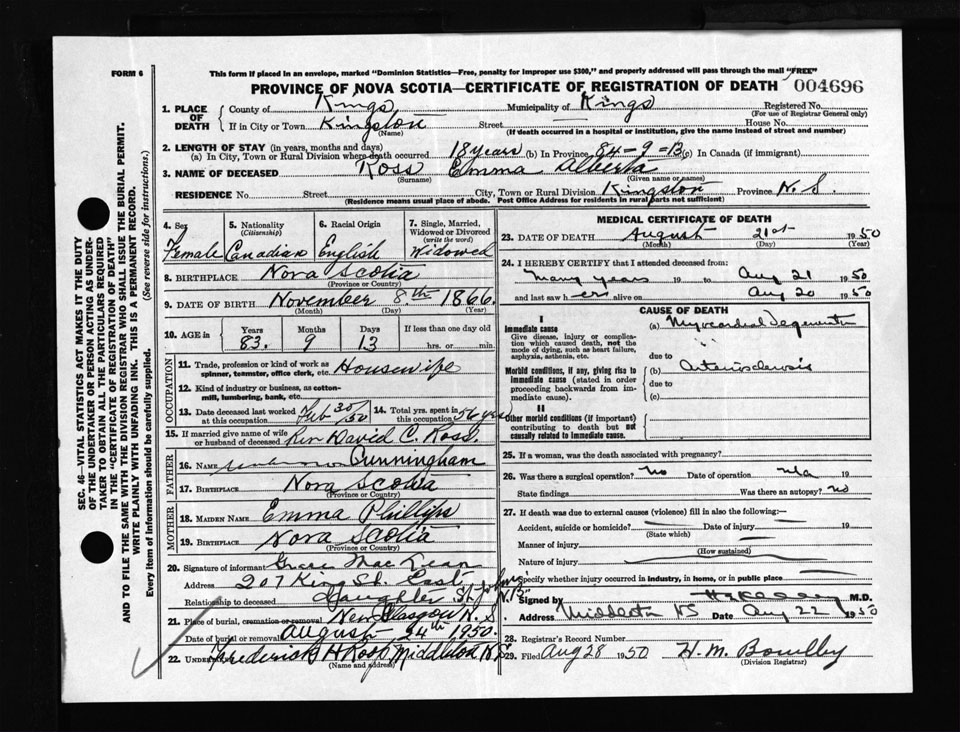 FORM 6
This form if placed in an envelope, marked "Dominion Statistics—Free, penalty for improper use $300," and properly addressed will pass through the mail "FREE"
PROVINCE OF NOVA SCOTIA—CERTIFICATE OF REGISTRATION OF DEATH 004696
1. PLACE OF DEATH
County of Kings Municipality of Kings Registered No.
(For use of Registrar General only)
If in City or Town Kingston Street House No.
(Name) (If death occurred in a hospital or institution, give the name instead of street and number)
2. LENGTH OF STAY (in years, months and days)
(a) In City, Town or Rural Division where death occurred 18 years (b) In Province 84-9-13 (c) In Canada (if immigrant)
3. NAME OF DECEASED Ross Emma Alberta
(Surname) (Given name or names)
RESIDENCE No. Street City, Town or Rural Division Kingston Province N.S.
(Residence means usual place of abode. Post Office Address for residents in rural parts not sufficient)
4. Sex 5. Nationality 6. Racial Origin 7. Single, Married, Widowed or Divorced
(Citizenship) (write the word)
Female Canadian English Widowed
8. BIRTHPLACE Nova Scotia
(Province or Country)
9. DATE OF BIRTH November 8th 1866
(Month) (Day) (Year)
10. AGE in Years Months Days If less than one day old
83. 9 13 hrs. or min.
OCCUPATION
11. Trade, profession or kind of work as spinner, teamster, office clerk, etc. Housewife
12. Kind of industry or business, as cotton-mill, lumbering, bank, etc.
13. Date deceased last worked at this occupation Feb 50 14. Total yrs. spent in this occupation 56 yrs
15. If married give name of wife or husband of deceased Rev David C. Ross.
FATHER
16. NAME Cunningham
17. BIRTHPLACE Nova Scotia
(Province or Country)
MOTHER
18. MAIDEN NAME Emma Phillips
19. BIRTHPLACE Nova Scotia
(Province or Country)
20. Signature of informant Grace MacLean
Address 207 King St. East, St. John's N.B.
Relationship to deceased Daughter
21. Place of burial, cremation or removal New Glasgow N.S.
Date of burial or removal August 24th 1950.
22. Undertaker Frederick H Roop Middleton N.S.
(Name and address)
MEDICAL CERTIFICATE OF DEATH
23. DATE OF DEATH August 21st 1950
(Month) (Day) (Year)
24. I HEREBY CERTIFY that I attended deceased from:
many years 19 to Aug 21 1950
and last saw her alive on Aug 20 1950
CAUSE OF DEATH
I
Immediate cause
Give disease, injury or complication which caused death, not the mode of dying, such as heart failure, asphyxia, asthenia, etc.
(a) Myocardial Degeneration
due to
Morbid conditions, if any, giving rise to immediate cause (stated in order proceeding backwards from immediate cause).
(b) Arteriosclerosis
due to
(c)
II
Other morbid conditions (if important) contributing to death but not causally related to immediate cause.
25. If a woman, was the death associated with pregnancy?
26. Was there a surgical operation? no Date of operation 19
State findings Was there an autopsy? no
27. If death was due to external causes (violence) fill in also the following:—
Accident, suicide or homicide? Date of injury 19
(State which)
Manner of injury
(How sustained)
Nature of injury
Specify whether injury occurred in industry, in home, or in public place
Signed by M.D.
Address Middleton NS Date Aug 22 1950
28. Registrar's Record Number
29. Filed Aug 28 1950 H.M. Bowlby
(Division Registrar)
SEC. 46—VITAL STATISTICS ACT MAKES IT THE DUTY
OF THE UNDERTAKER OR PERSON ACTING AS UNDER-
TAKER TO OBTAIN ALL THE PARTICULARS REQUIRED
IN THE "CERTIFICATE OF REGISTRATION OF DEATH"
AND TO FILE THE SAME WITH THE DIVISION REGISTRAR WHO SHALL ISSUE THE BURIAL PERMIT.
WRITE PLAINLY WITH UNFADING INK. THIS IS A PERMANENT RECORD.
Every item of information should be carefully supplied. (See reverse side for instructions.)